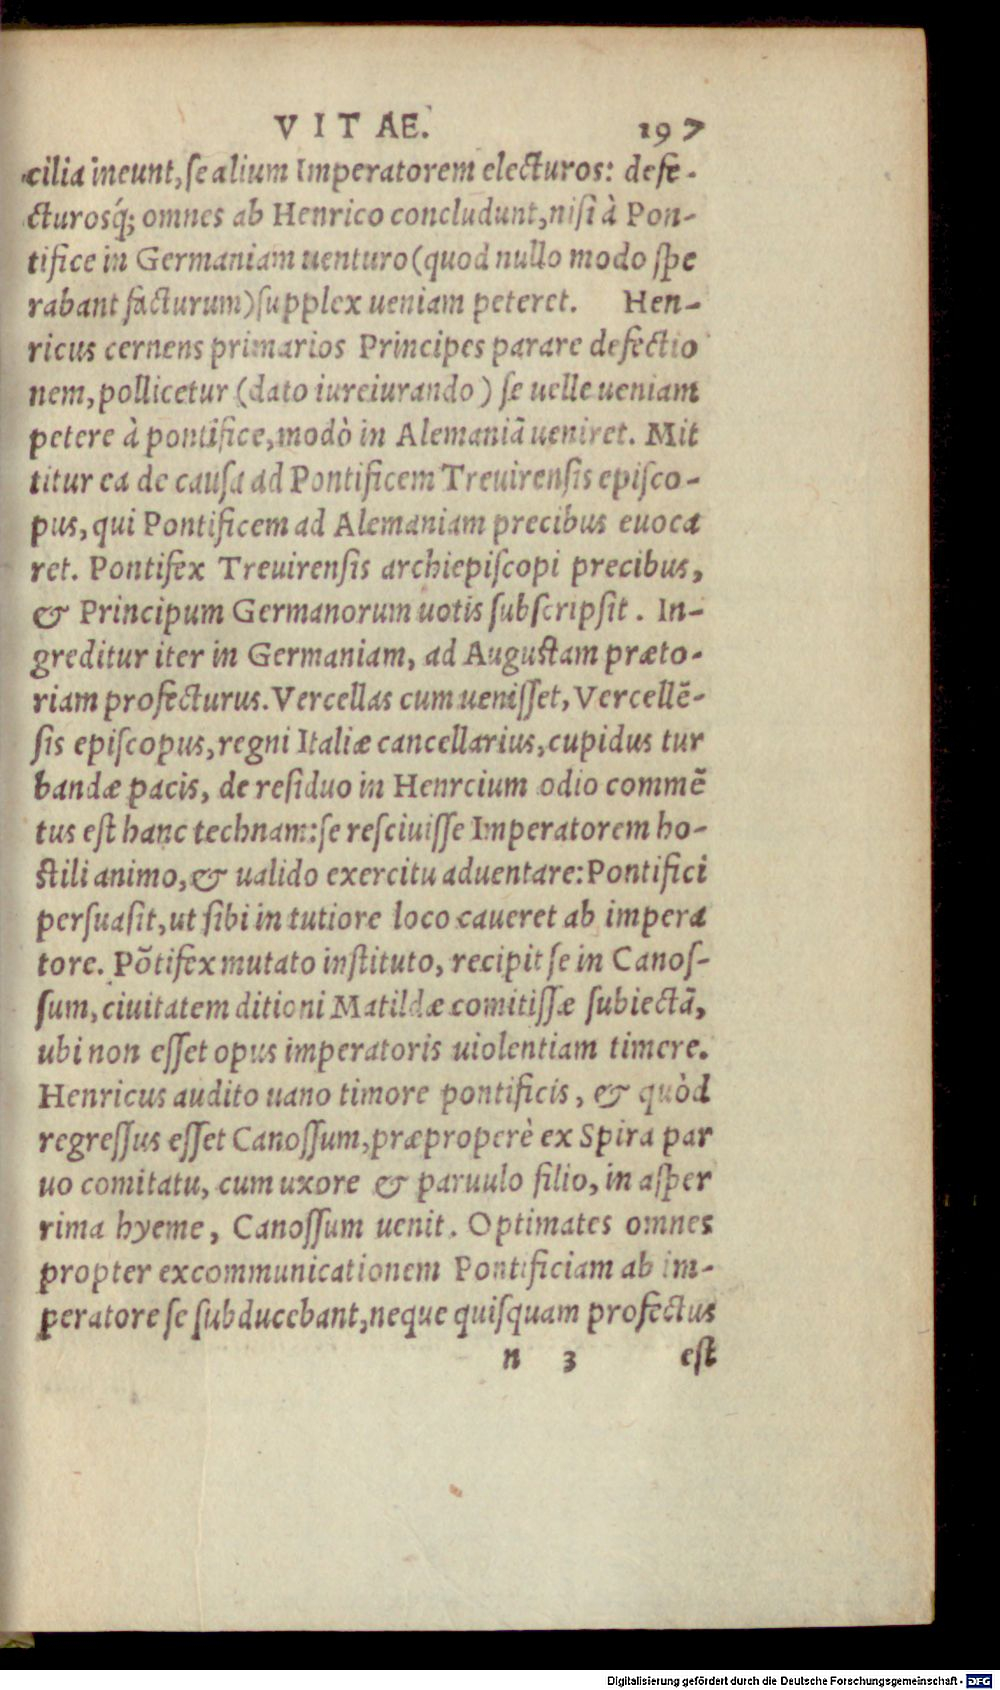 VITAE. 197
cilia ineunt, se alium Imperatorem electuros: defe-
cturosq́; omnes ab Henrico concludunt, nisi à Pon-
tifice in Germaniam uenturo (quod nullo modo spe
rabant facturum) supplex ueniam peteret. Hen-
ricus cernens primarios Principes parare defectio
nem, pollicetur (dato iureiurando) se uelle ueniam
petere à pontifice, modò in Alemaniã ueniret. Mit
titur ea de causa ad Pontificem Treuirensis episco-
pus, qui Pontificem ad Alemaniam precibus euoca
ret. Pontifex Treuirensis archiepiscopi precibus,
& Principum Germanorum uotis subscripsit. In-
greditur iter in Germaniam, ad Augustam præto-
riam profecturus. Vercellas cum uenisset, Vercellẽ-
sis episcopus, regni Italiæ cancellarius, cupidus tur
bandæ pacis, de residuo in Henrcium odio commẽ
tus est hanc technam: se resciuisse Imperatorem ho-
stili animo, & ualido exercitu aduentare: Pontifici
persuasit, ut sibi in tutiore loco caueret ab impera
tore. Põtifex mutato instituto, recipit se in Canos-
sum, ciuitatem ditioni Matildæ comitissæ subiectã,
ubi non esset opus imperatoris uiolentiam timere.
Henricus audito uano timore pontificis, & quòd
regressus esset Canossum, præproperè ex Spira par
uo comitatu, cum uxore & paruulo filio, in asper
rima hyeme, Canossum uenit. Optimates omnes
propter excommunicationem Pontificiam ab im-
peratore se subducebant, neque quisquam profectus
n 3 est
Digitalisierung gefördert durch die Deutsche Forschungsgemeinschaft - DFG